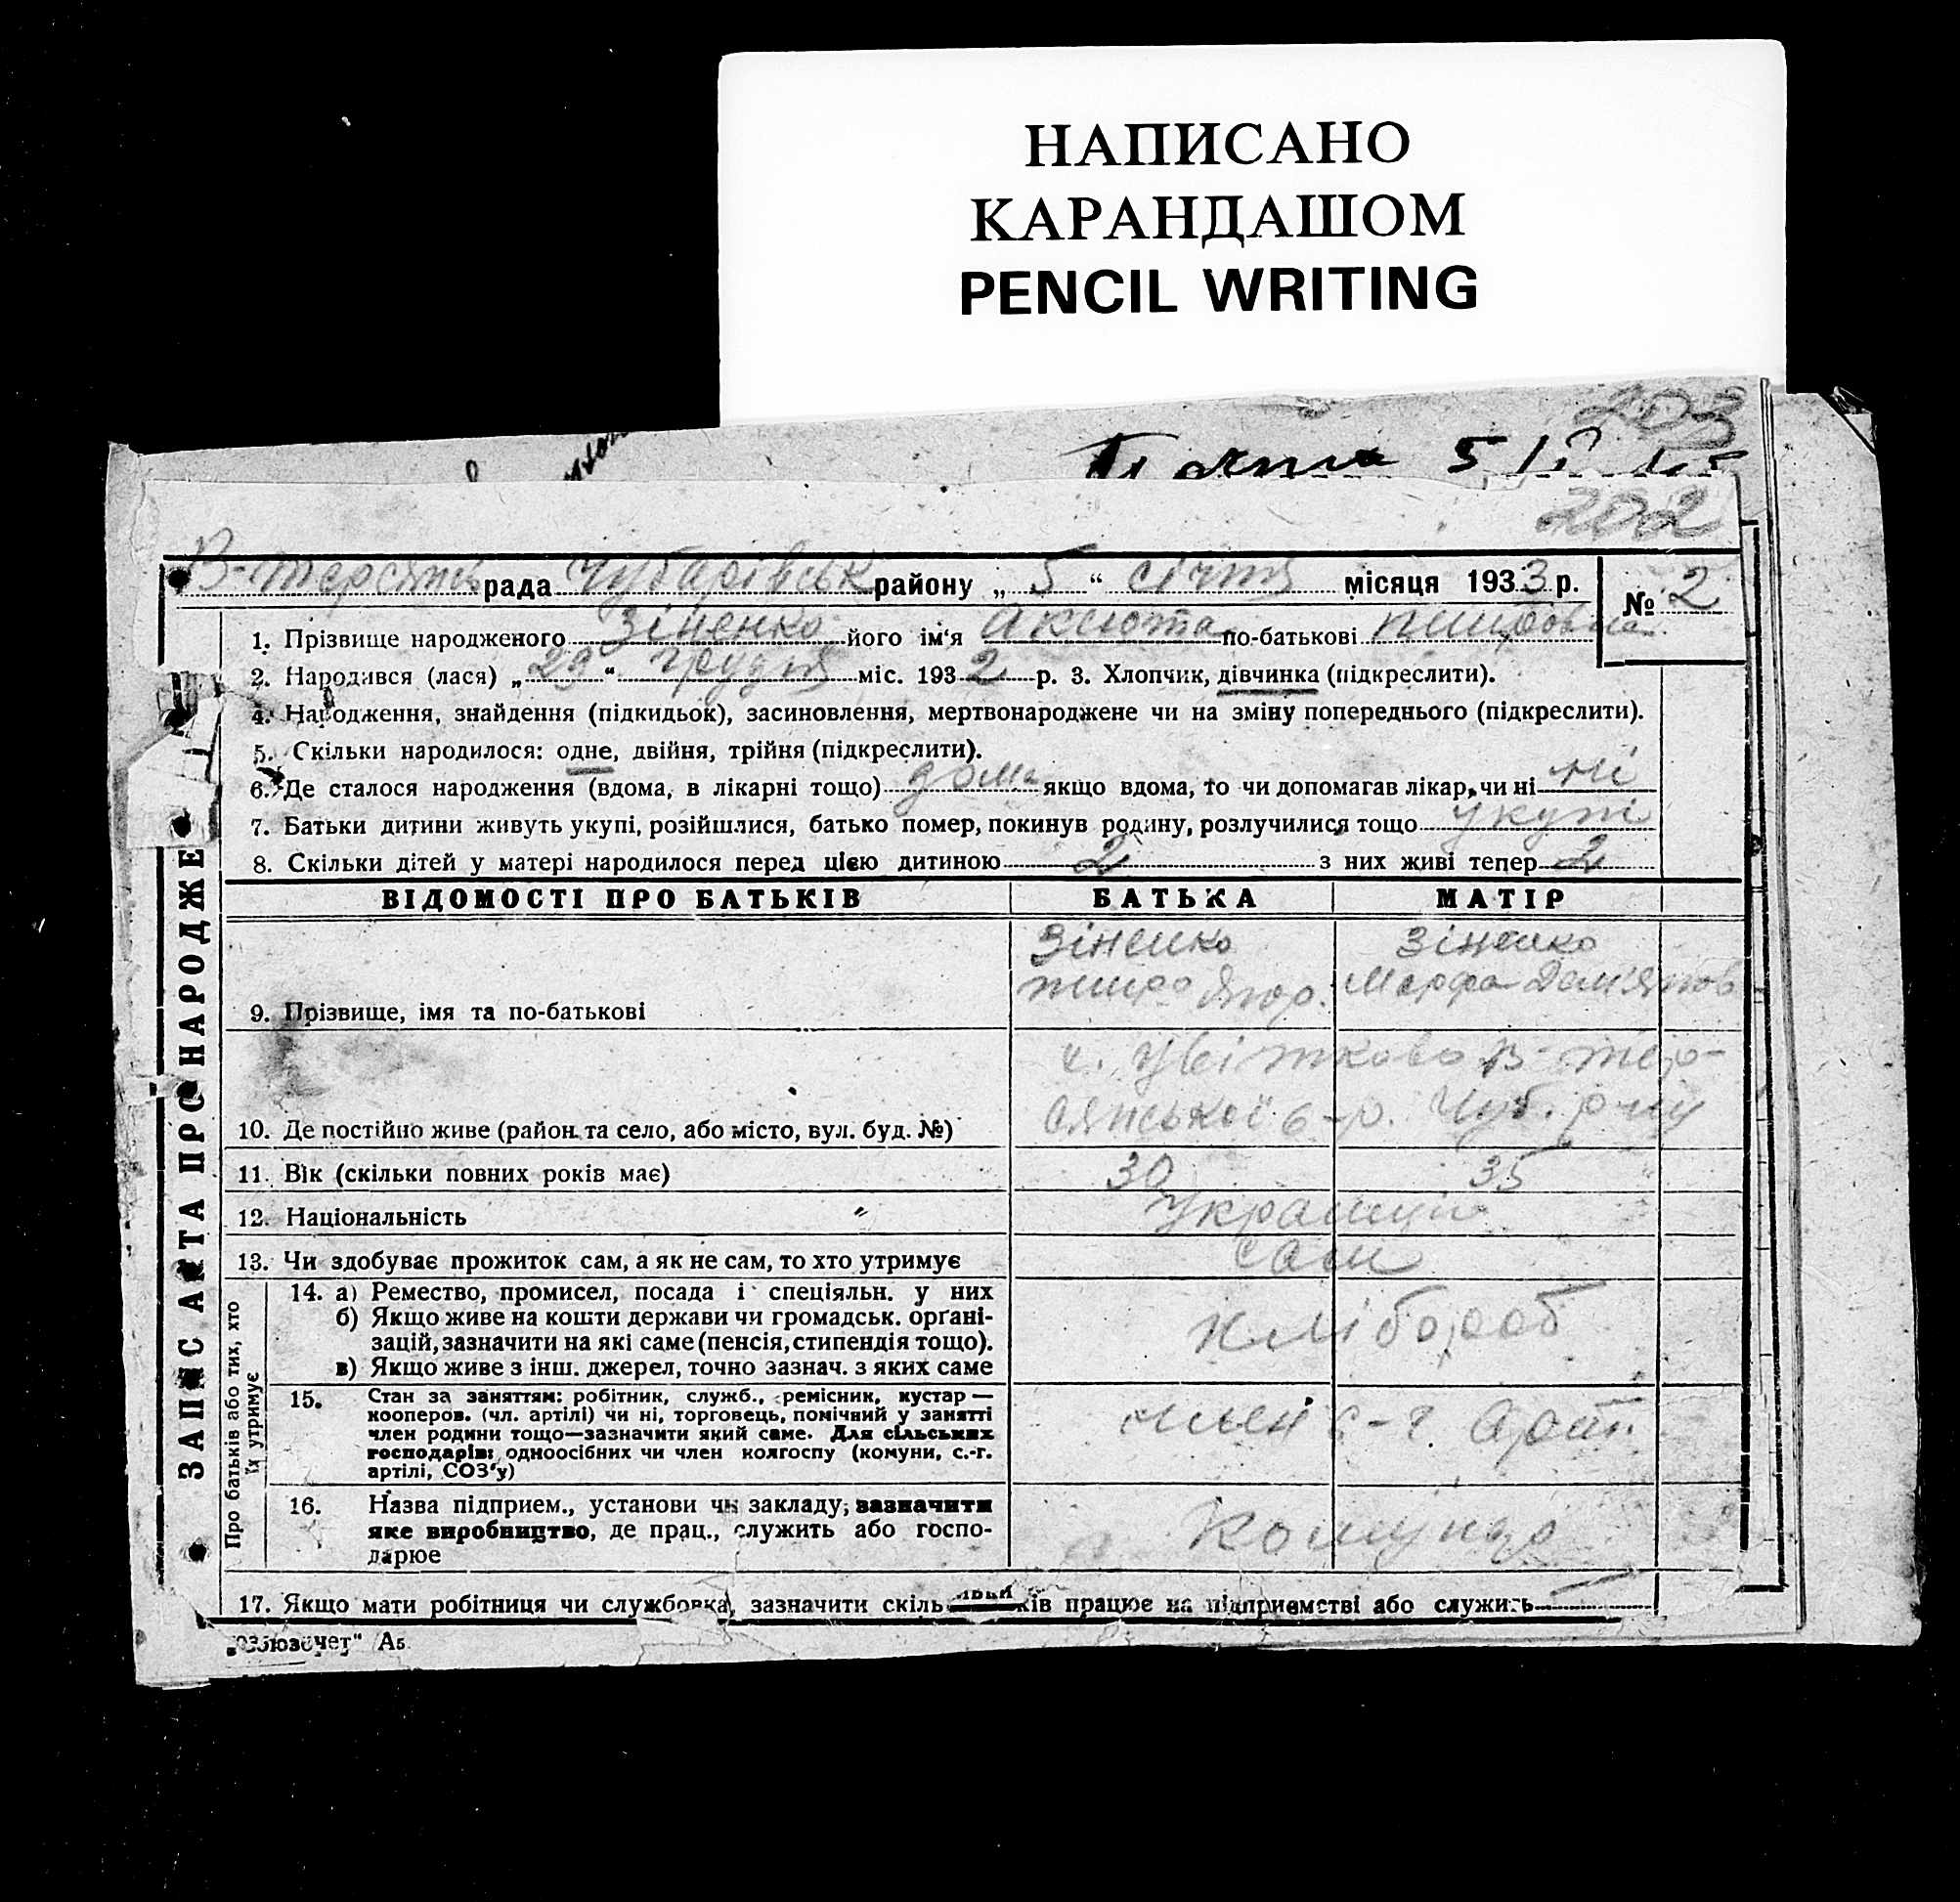 НАПИСАНО
КАРАНДАШОМ
PENCIL WRITING
203
202
В-Терсянсь рада Чубарівськ району „ 5 “ січня місяця 1933 р. № 2
1. Прізвище народженого Зіненко його ім‘я Аксюта по-батькові
2. Народився (лася) „ 29 “ грудня міс. 1932 р. 3. Хлопчик, дівчинка (підкреслити).
4. Народження, знайдення (підкидьок), засиновлення, мертвонароджене чи на зміну попереднього (підкреслити).
5. Скільки народилося: одне, двійня, трійня (підкреслити).
6. Де сталося народження (вдома, в лікарні тощо) дома якщо вдома, то чи допомагав лікар, чи ні ні
7. Батьки дитини живуть укупі, розійшлися, батько помер, покинув родину, розлучилися тощо укупі
8. Скільки дітей у матері народилося перед цією дитиною 2 з них живі тепер 2
ВІДОМОСТІ ПРО БАТЬКІВ БАТЬКА МАТІР
Зіненко Зіненко
Марфа Дем'янов
9. Прізвище, імя та по-батькові
Цвітково В-Тер-
сянської с-р. Чуб. р-ну
10. Де постійно живе (район та село, або місто, вул. буд. №)
11. Вік (скільки повних років має) 30 35
12. Національність Українці
13. Чи здобуває прожиток сам, а як не сам, то хто утримує сам
14. а) Ремество, промисел, посада і спеціяльн. у них
б) Якщо живе на кошти держави чи громадськ. орґані-
зацій, зазначити на які саме (пенсія, стипендія тощо).
в) Якщо живе з інш. джерел, точно зазнач. з яких саме
хлібороб
15. Стан за заняттям: робітник, служб., ремісник, кустар —
кооперов. (чл. артілі) чи ні, торговець, помічний у занятті
член родини тощо—зазначити який саме. Для сільських
господарів: одноосібних чи член колгоспу (комуни, с.-г.
артілі, СОЗ‘у)
член с-г. арт.
16. Назва підприєм., установи чи закладу, зазначити
яке виробництво, де прац., служить або госпо-
дарює
17. Якщо мати робітниця чи службовка, зазначити скіль ків працює на підприємстві або служить
"Союзучет" А5
ЗАПИС АКТА ПРО НАРОДЖЕ
Про батьків або тих, хто
їх утримує